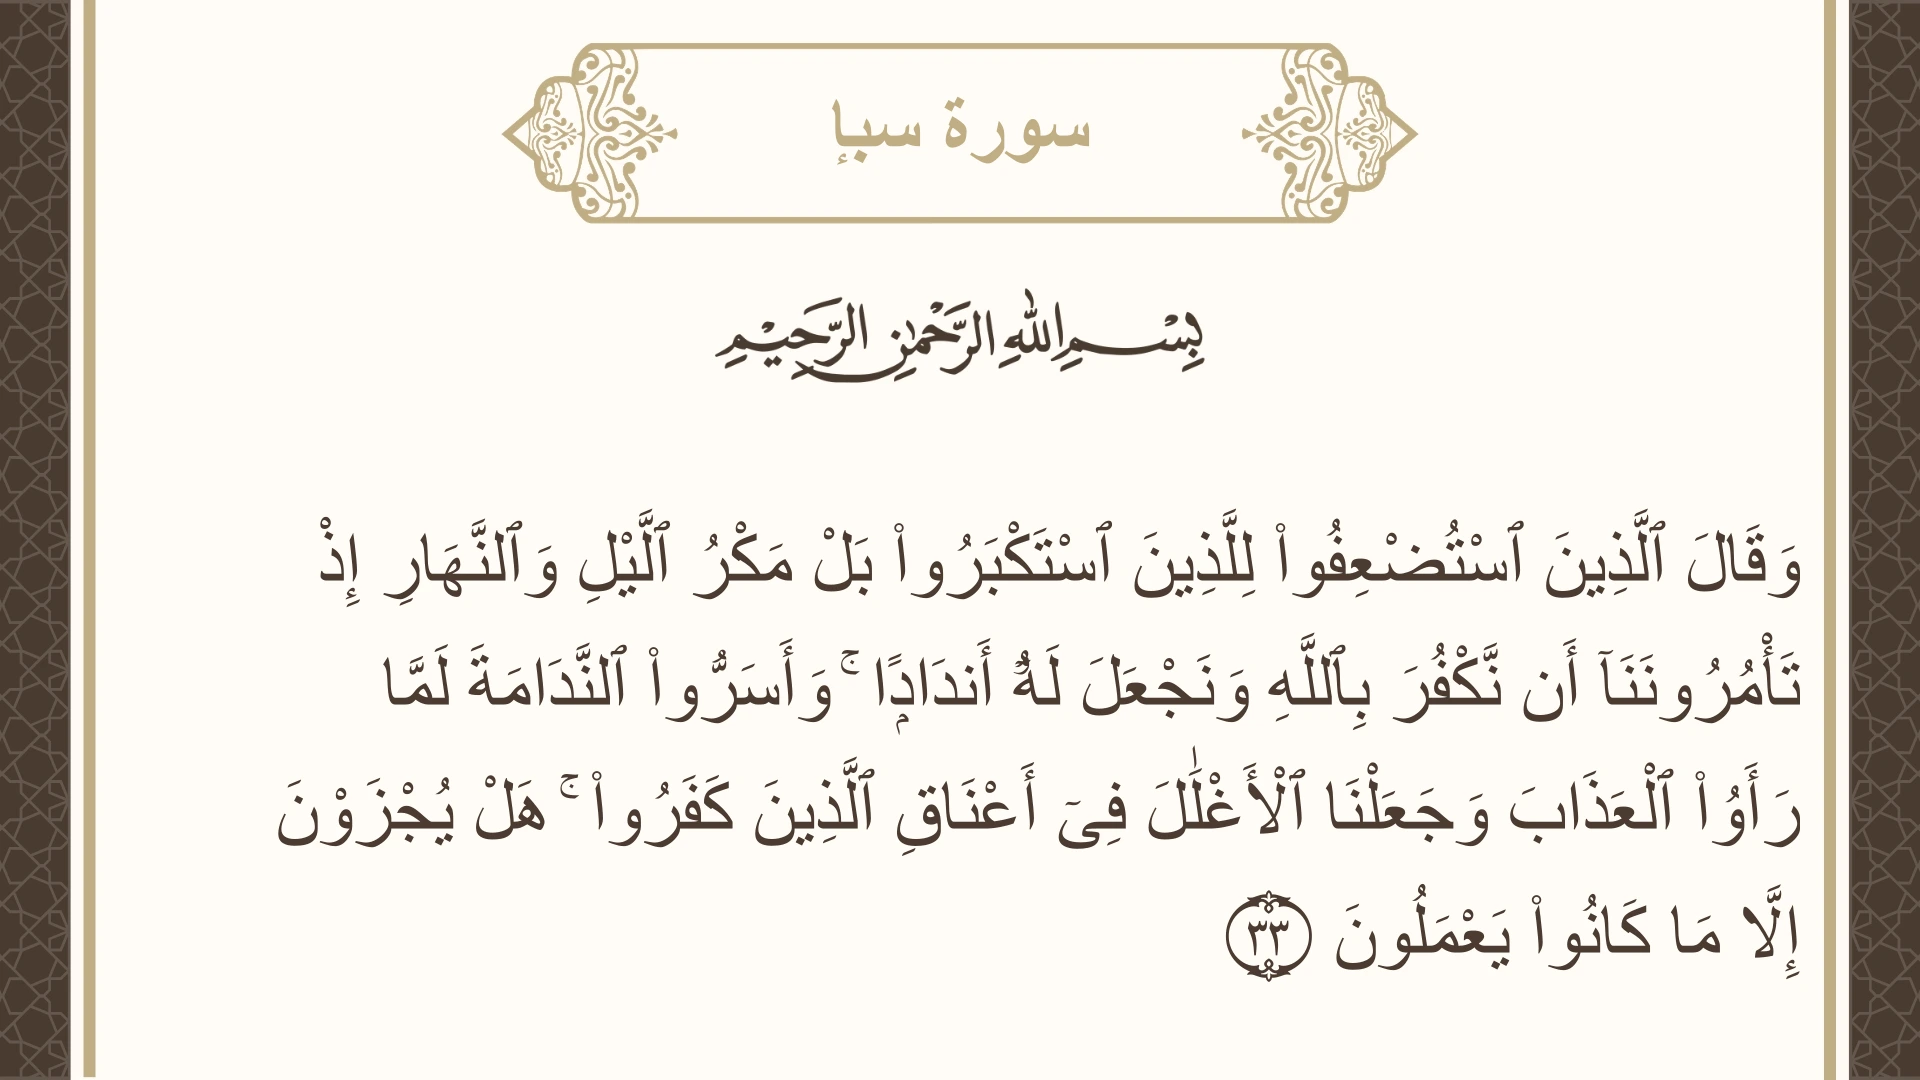 سورة سبإ
بِسْمِ اللهِ الرَّحْمٰنِ الرَّحِيْمِ
وَقَالَ ٱلَّذِينَ ٱسْتُضْعِفُوا۟ لِلَّذِينَ ٱسْتَكْبَرُوا۟ بَلْ مَكْرُ ٱلَّيْلِ وَٱلنَّهَارِ إِذْ
تَأْمُرُونَنَآ أَن نَّكْفُرَ بِٱللَّهِ وَنَجْعَلَ لَهُۥٓ أَندَادًۭا ۚ وَأَسَرُّوا۟ ٱلنَّدَامَةَ لَمَّا
رَأَوُا۟ ٱلْعَذَابَ وَجَعَلْنَا ٱلْأَغْلَٰلَ فِىٓ أَعْنَاقِ ٱلَّذِينَ كَفَرُوا۟ ۚ هَلْ يُجْزَوْنَ
إِلَّا مَا كَانُوا۟ يَعْمَلُونَ ٣٣